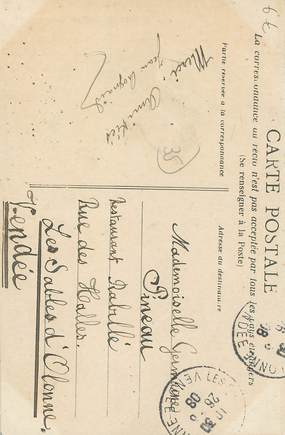 CARTE POSTALE
La correspondance au recto n'est pas acceptée par tous les pays étrangers
(Se renseigner à la Poste)
Partie réservée à la correspondance
Adresse du destinataire
6€
Merci
Amitiés
35
Mademoiselle Germaine
Pineau
Restaurant Rabillé
Rue des Halles
Les Sables d'Olonne
Vendée